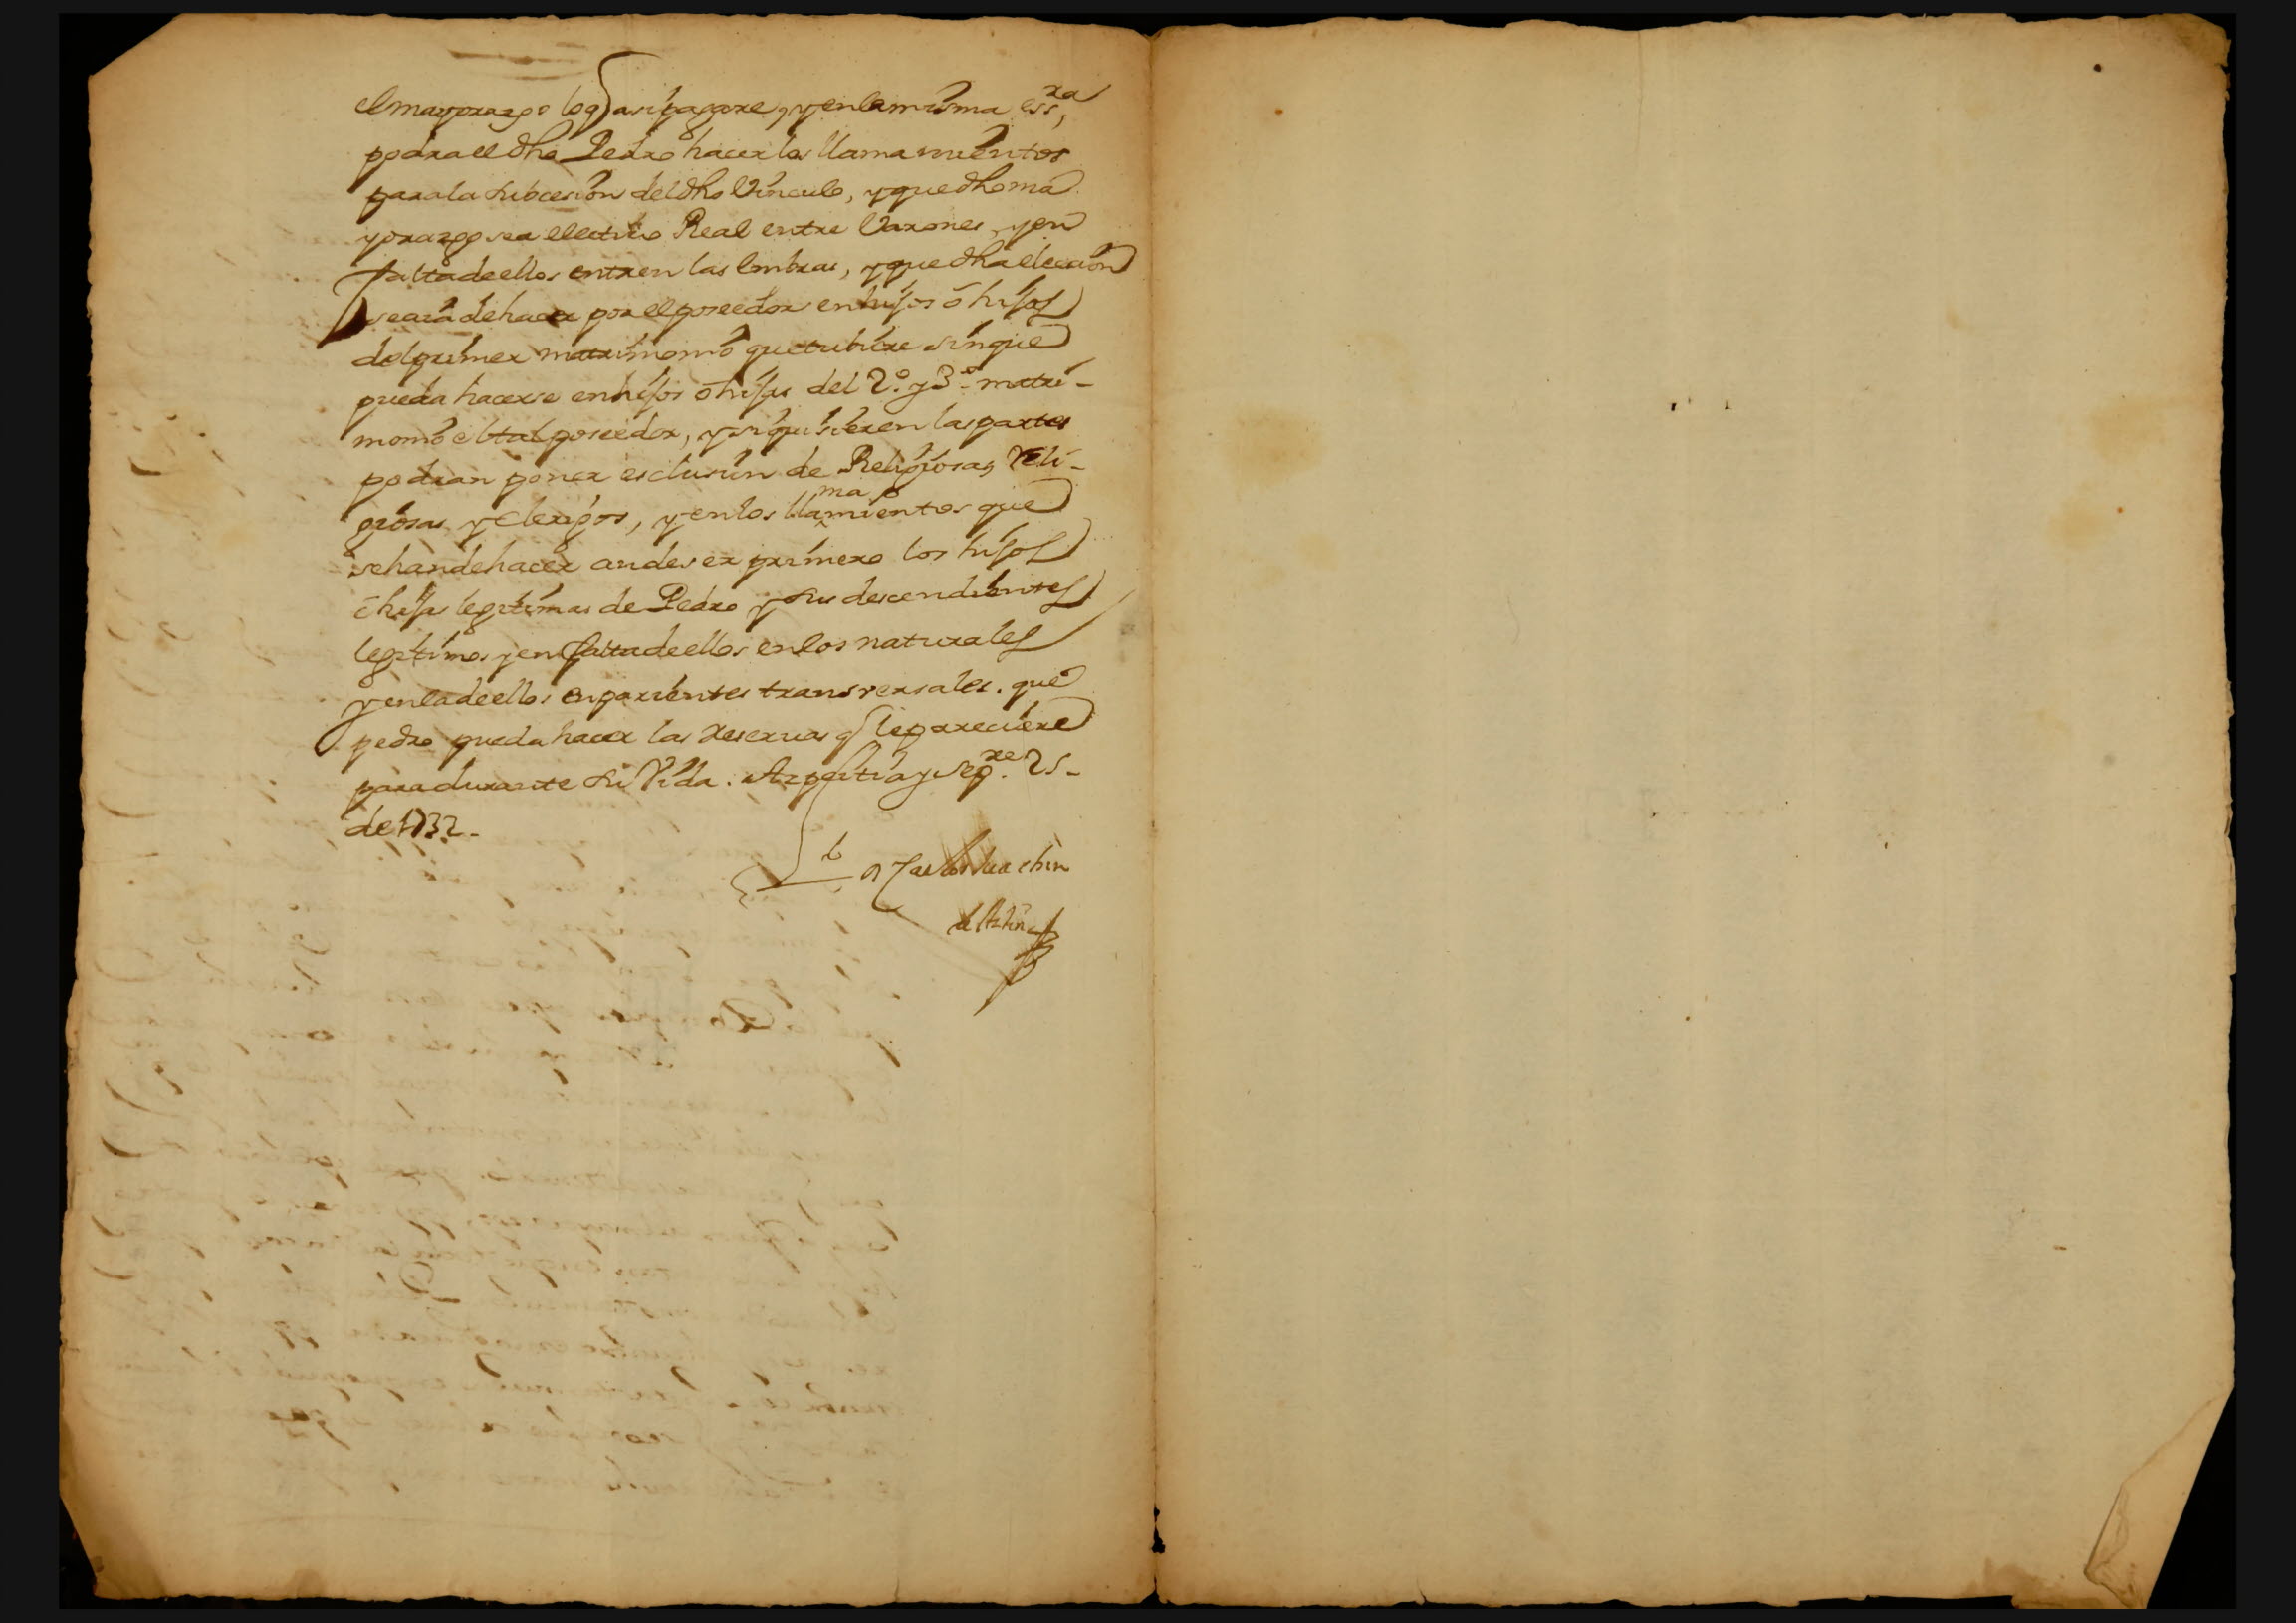 el mayorazgo lo q asi pagare, y en la misma essra,
podra el dho Pedro hacer los llamamientos
para la subcesion del dho Vinculo, y que dho ma
yorazgo sea electivo Real entre Varones, y en
falta de ellos entren las embras, y que dha eleccion
se aia de hacer por el poseedor en hijos ó hijas
del primer matrimonio que tubiere sin que
pueda hacerse en hijos ó hijas del 2º. y 3º. matri-
monio el tal poseedor, y si quisieren las partes
podran poner esclusion de Religiosas, Reli-
giosas y clerigos, y en los llamamientos que
se han de hacer an de ser primero los hijos
ó hijas legitimas de Pedro y sus descendientes
legitimos y en falta de ellos en los naturales
y en la de ellos en parientes transversales. que
pedro pueda hacer las reservas q le pareciere
para durante su Vida. Azpeitia y Sepre. 25-
de 1732-